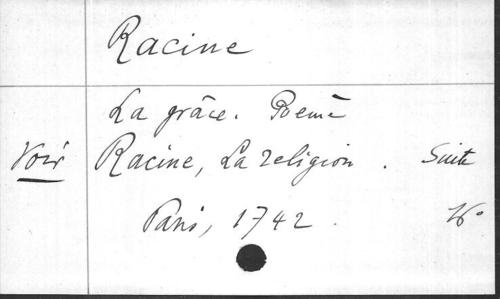 Racine
La grâce. Poëme
Voir Racine, La religion. Suite
Paris, 1742. 16°